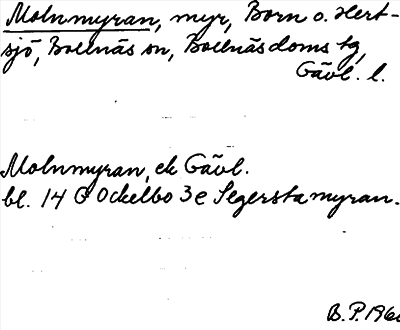 Molnmyran, myr, Born o. Hert-
sjö, Bollnäs sn, Bollnäs doms tg,
Gävl. l.
Molnmyran, ek Gävl.
bl. 14 G Ockelbo 3e Segersta myran.
B.P. 1960